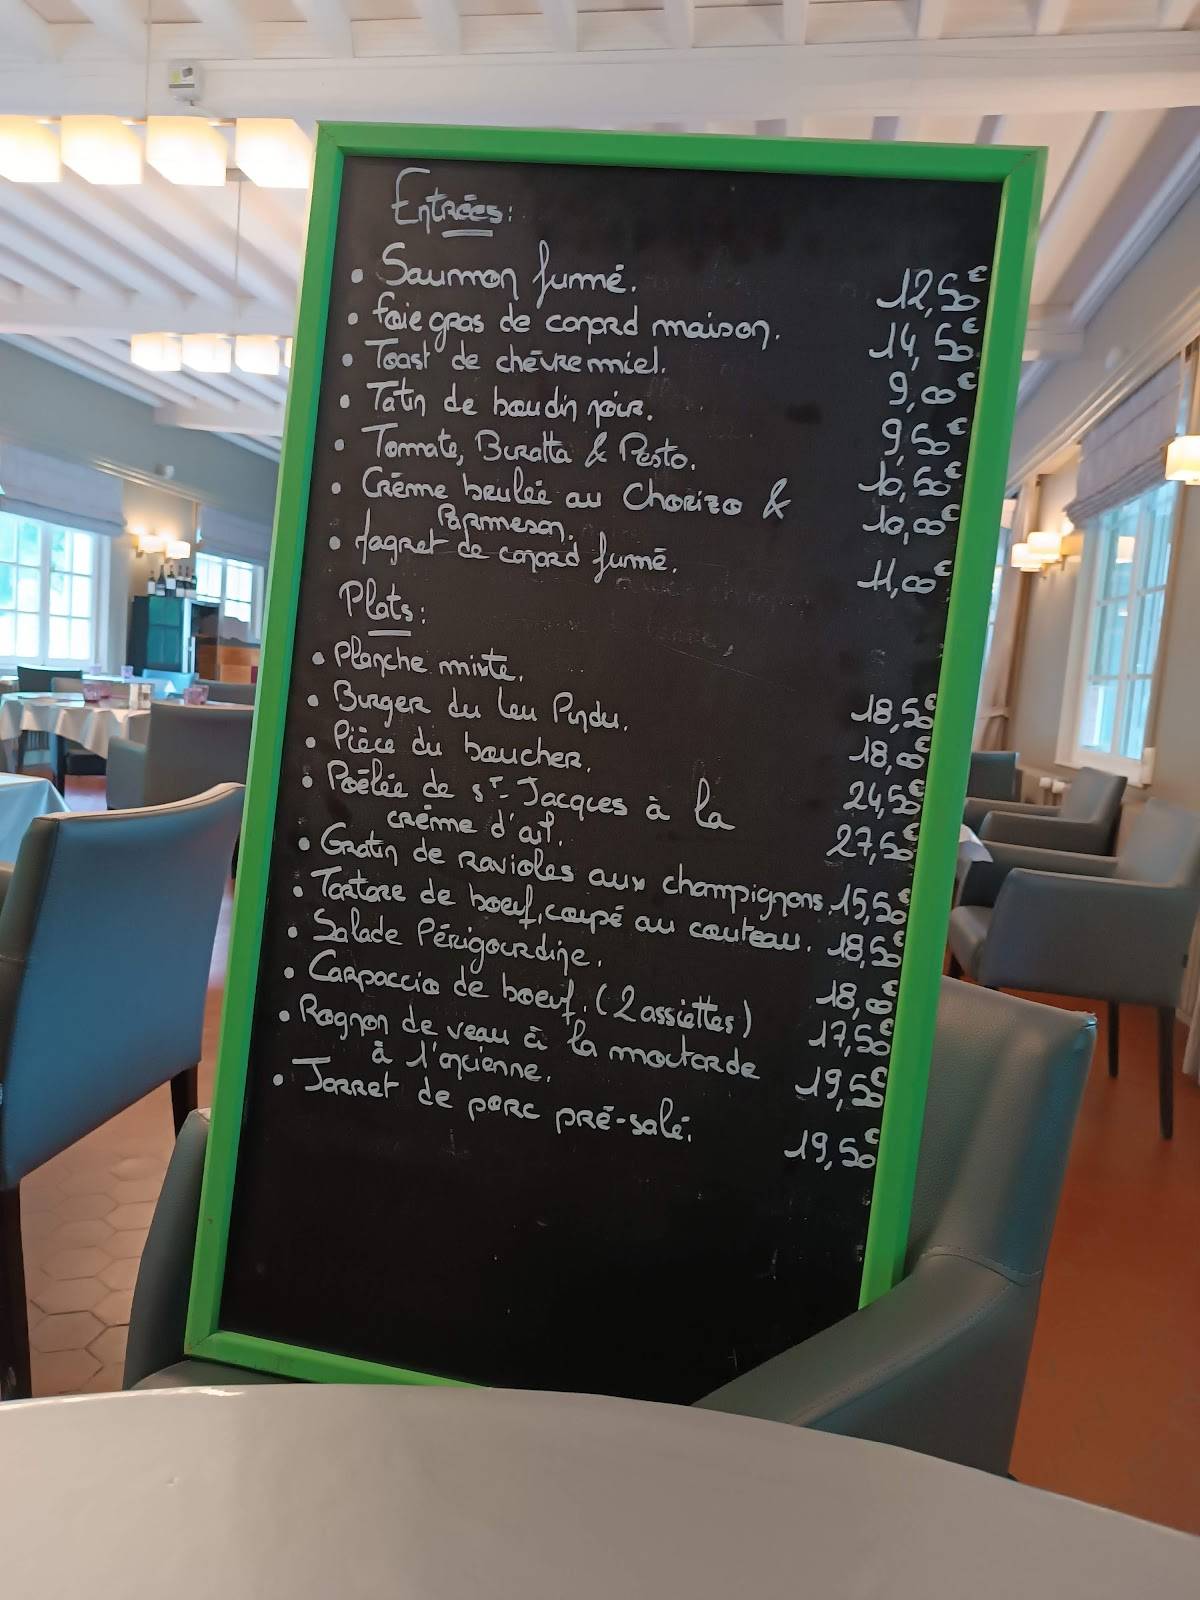 Entrées:
• Saumon fumé. 12,50€
• foie gras de canard maison. 14,50€
• Toast de chèvre miel. 9,00€
• Tatin de boudin noir. 9,50€
• Tomate, Buratta & Pesto. 10,50€
• Crème brulée au Chorizo & 10,00€
Parmesan.
• Magret de canard fumé. 11,00€
Plats:
• Planche mixte. 18,50€
• Burger du Leu Pindu. 18,00€
• Pièce du boucher. 24,50€
• Poêlée de St-Jacques à la 27,50€
crème d'ail.
• Gratin de ravioles aux champignons. 15,50€
• Tartare de boeuf, coupé au couteau. 18,50€
• Salade Périgourdine. 18,00€
• Carpaccio de boeuf. (2 assiettes) 17,50€
• Rognon de veau à la moutarde 19,50€
à l'ancienne.
• Jarret de porc pré-salé. 19,50€